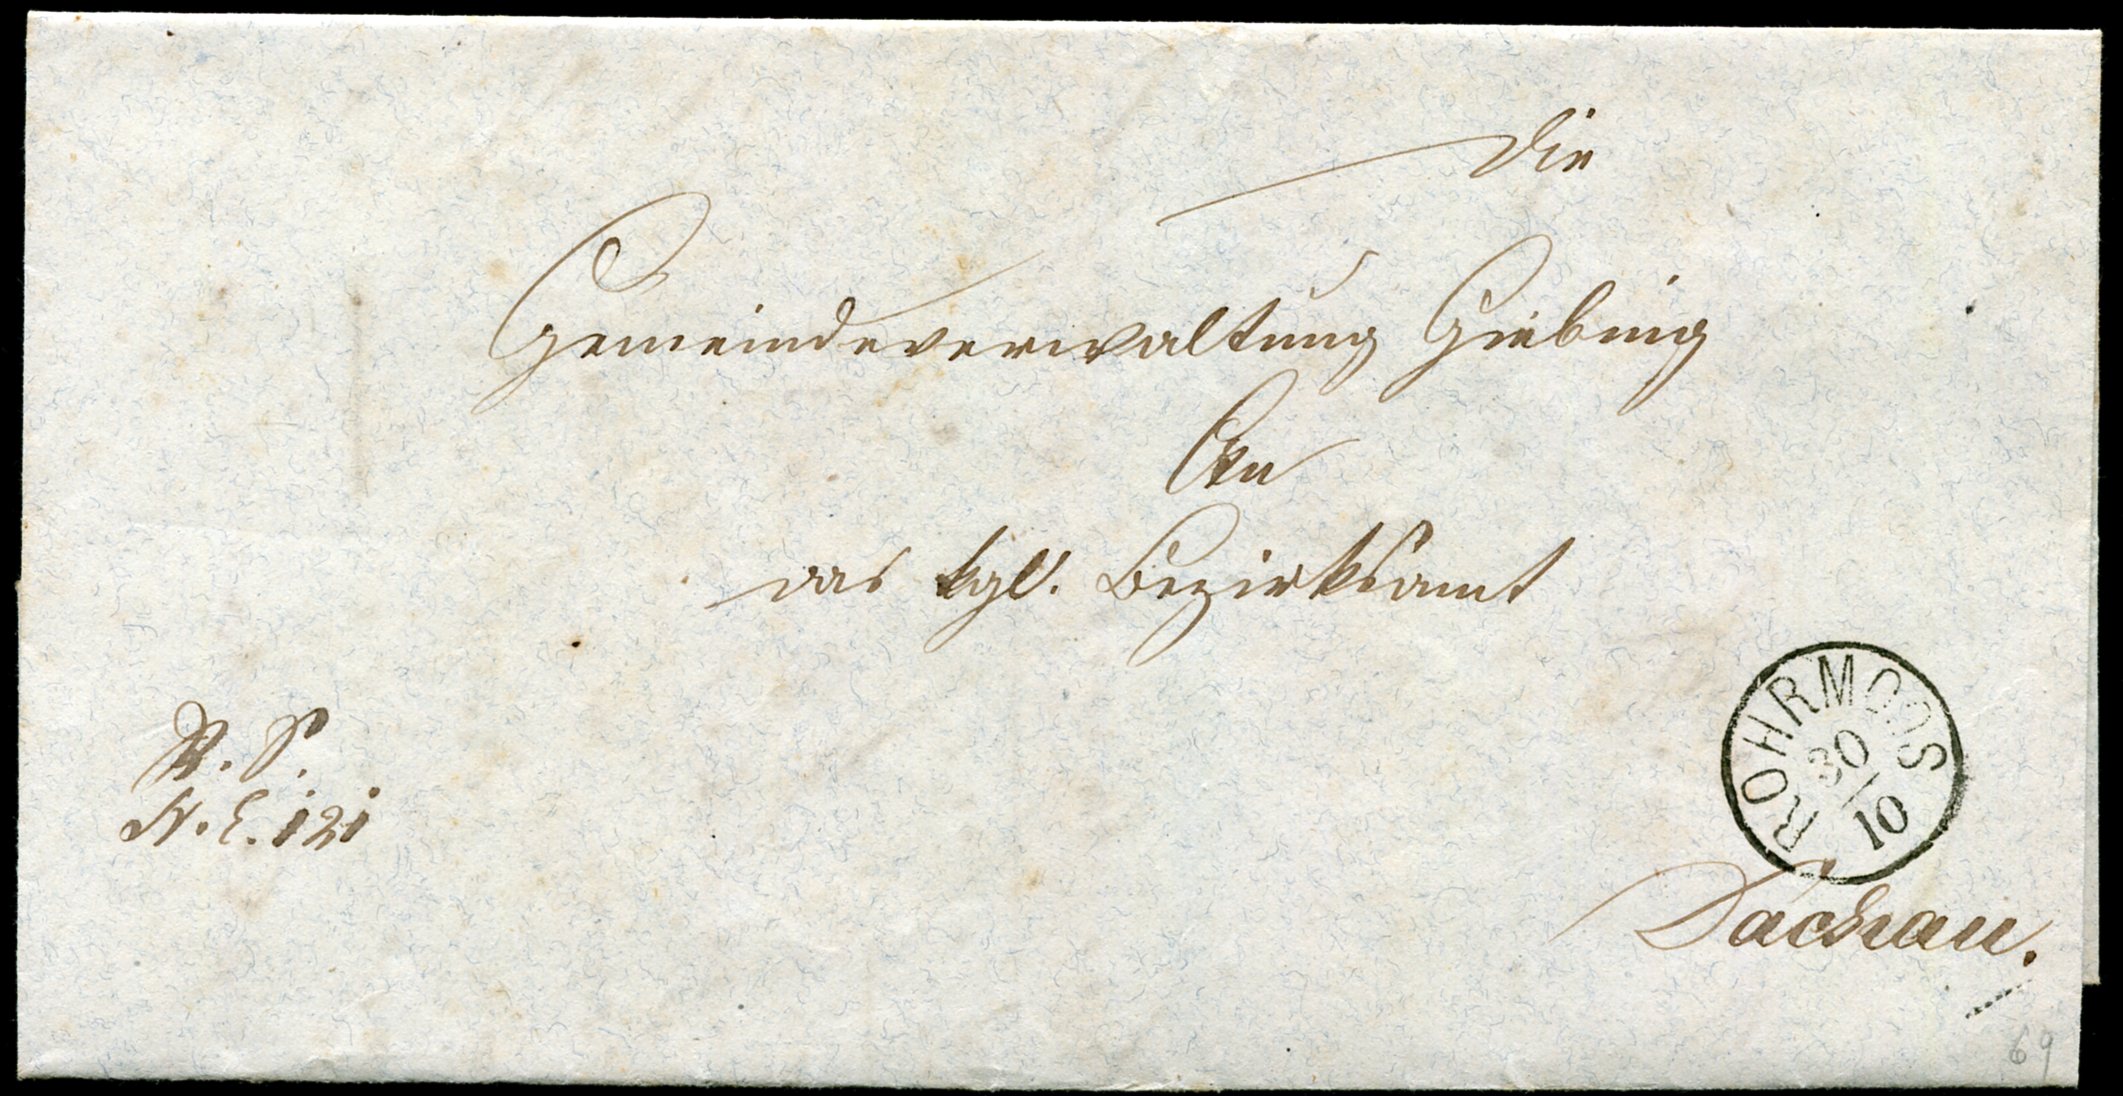 Die
Gemeindeverwaltung Giebing
An
das kgl. Bezirksamt
R. S.
N. E. 121
ROHRMOOS
30/10
Dachau.
69